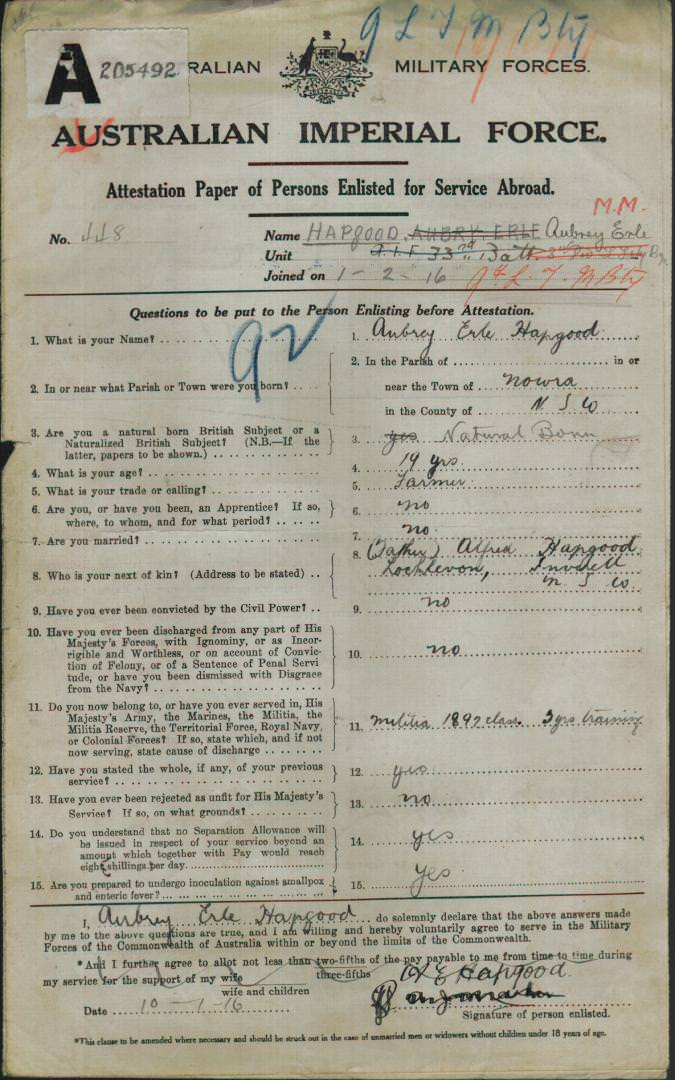 9 L T M Bty
A 205492
RALIAN MILITARY FORCES.
AUSTRALIAN IMPERIAL FORCE.
Attestation Paper of Persons Enlisted for Service Abroad.
M.M.
No. 448
Name HAPGOOD, AUBRY. ERLE Aubrey Erle
Unit A.I.F 33rd Batt
Joined on 1-2-16 9th L. T. M Bty
Questions to be put to the Person Enlisting before Attestation.
92
1. What is your Name? 1. Aubrey Erle Hapgood
2. In or near what Parish or Town were you born? 2. In the Parish of in or
near the Town of Nowra
in the County of N S W
3. Are you a natural born British Subject or a
Naturalized British Subject? (N.B.—If the
latter, papers to be shown.) 3. yes Natural Born
4. What is your age? 4. 19 yrs.
5. What is your trade or calling? 5. Farmer
6. Are you, or have you been, an Apprentice? If so,
where, to whom, and for what period? 6. no
7. Are you married? 7. no.
8. Who is your next of kin? (Address to be stated) 8. (Father) Alfred Hapgood
Lochlevon, Inverell
N S W
9. Have you ever been convicted by the Civil Power? 9. no
10. Have you ever been discharged from any part of His
Majesty's Forces, with Ignominy, or as Incor-
rigible and Worthless, or on account of Convic-
tion of Felony, or of a Sentence of Penal Servi
tude, or have you been dismissed with Disgrace
from the Navy? 10. no
11. Do you now belong to, or have you ever served in, His
Majesty's Army, the Marines, the Militia, the
Militia Reserve, the Territorial Force, Royal Navy,
or Colonial Forces? If so, state which, and if not
now serving, state cause of discharge 11. Militia 1897 class. 3 yrs training
12. Have you stated the whole, if any, of your previous
service? 12. yes
13. Have you ever been rejected as unfit for His Majesty's
Service? If so, on what grounds? 13. no
14. Do you understand that no Separation Allowance will
be issued in respect of your service beyond an
amount which together with Pay would reach
eight shillings per day 14. yes
15. Are you prepared to undergo inoculation against smallpox
and enteric fever? 15. Yes
I, Aubrey Erle Hapgood do solemnly declare that the above answers made
by me to the above questions are true, and I am willing and hereby voluntarily agree to serve in the Military
Forces of the Commonwealth of Australia within or beyond the limits of the Commonwealth.
*And I further agree to allot not less than two-fifths of the pay payable to me from time to time during
three-fifths
my service for the support of my wife
wife and children
A E Hapgood.
Date 10-1-16
Signature of person enlisted.
*This clause to be amended where necessary and should be struck out in the case of unmarried men or widowers without children under 18 years of age.